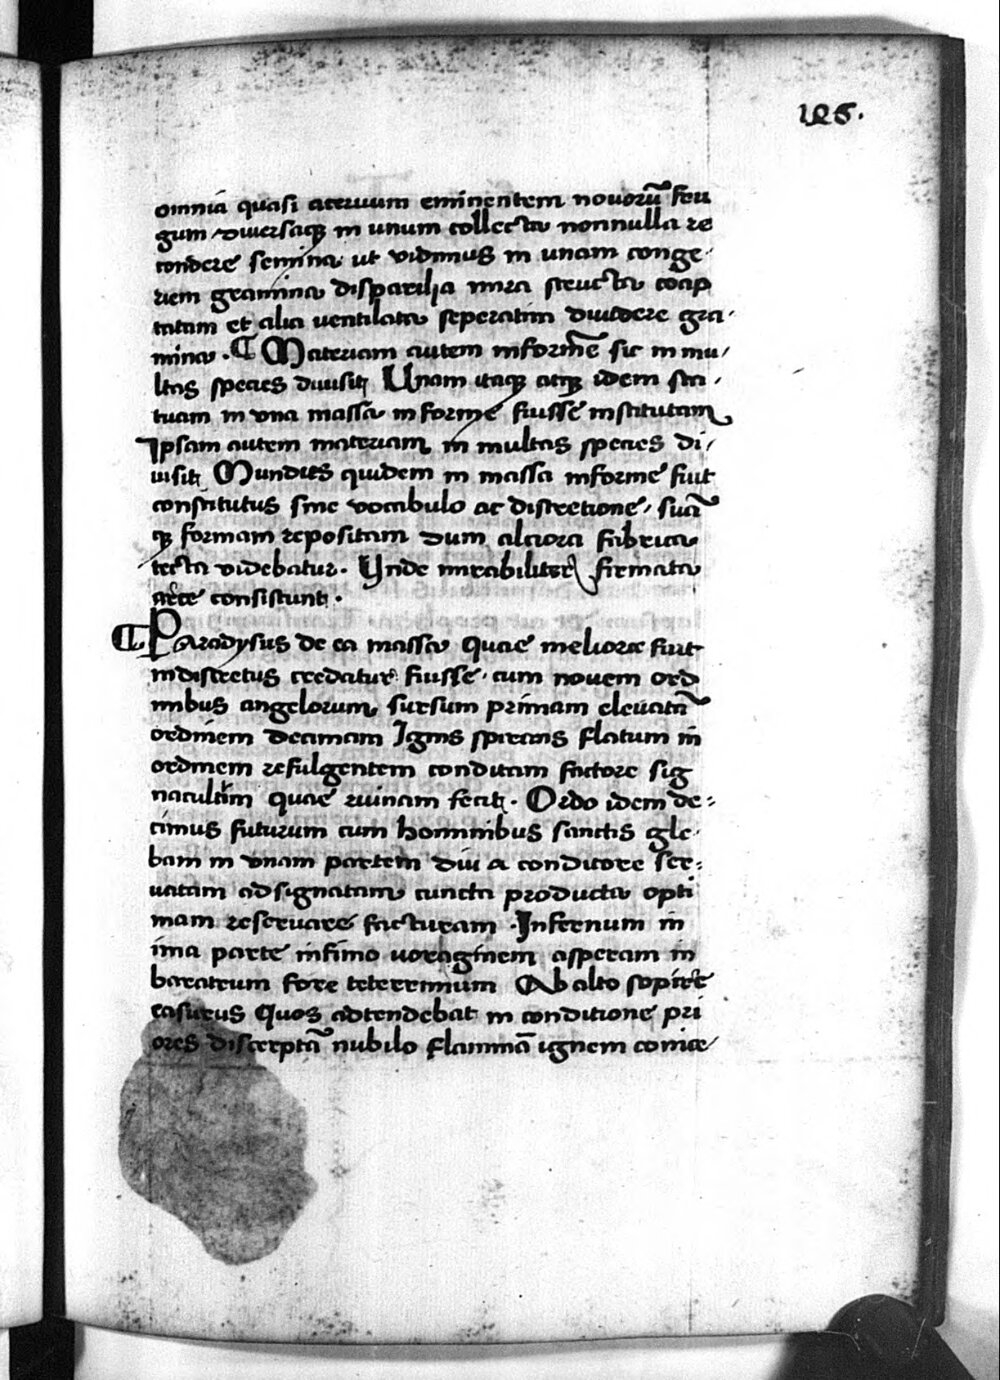 125.
omnia quasi aceruum eminentem nouorū fru
gum diuersaqꝫ in unum collecta nonnulla re
condere semina ut vidimus in unam conge
riem gramina disparilia mira structa coap
tatam et alia ventilata seperatim diuidere gra
mina. ¶ Materiam autem informē sic in mu
ltas species diuisit Unam itaqꝫ atqꝫ idem sta
tuam in vna massa informe fuisse institutam
Ipsam autem materiam in multas species di
uisit Mundus quidem in massa informe fuit
constitutus sine vocabulo ac discretione, suā
qꝫ formam repositam dum alciora fabrica
tecta videbatur. Unde mirabiliter firmata
arce consistunt.
¶ Paradysus de ea massa quae meliora fuit
indiscretus credatur fuisse. cum nouem ord
inibus angelorum sursum primam eleuatā
ordinem decimam Ignis spirans flatum in
ordinem refulgentem conditam factore sig
naculum quae ruinam fecit. Ordo idem de:
cimus futurum cum hominibus sanctis gle
bam in vnam partem diu a conditore ser:
uatam adsignatam cuncta producta opti
mam reseruare facturam. Infernum in
ima parte infimo uoraginem asperam in
baratrum fore teterrimum Ab alto sopire
casurus Quos adtendebat in conditione pri
ores discerptā nubilo flammā ignem comice